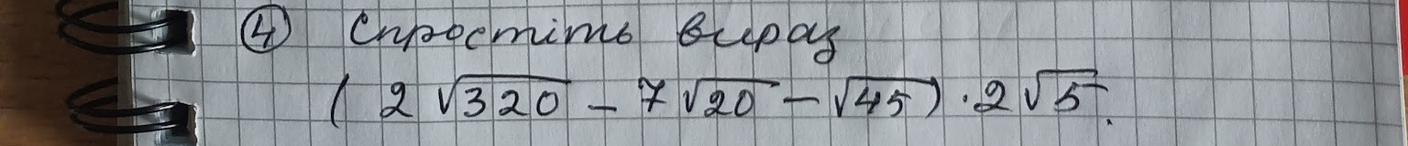 ④ Спростіть вираз
( 2√320 - 7√20 - √45 ) · 2√5.